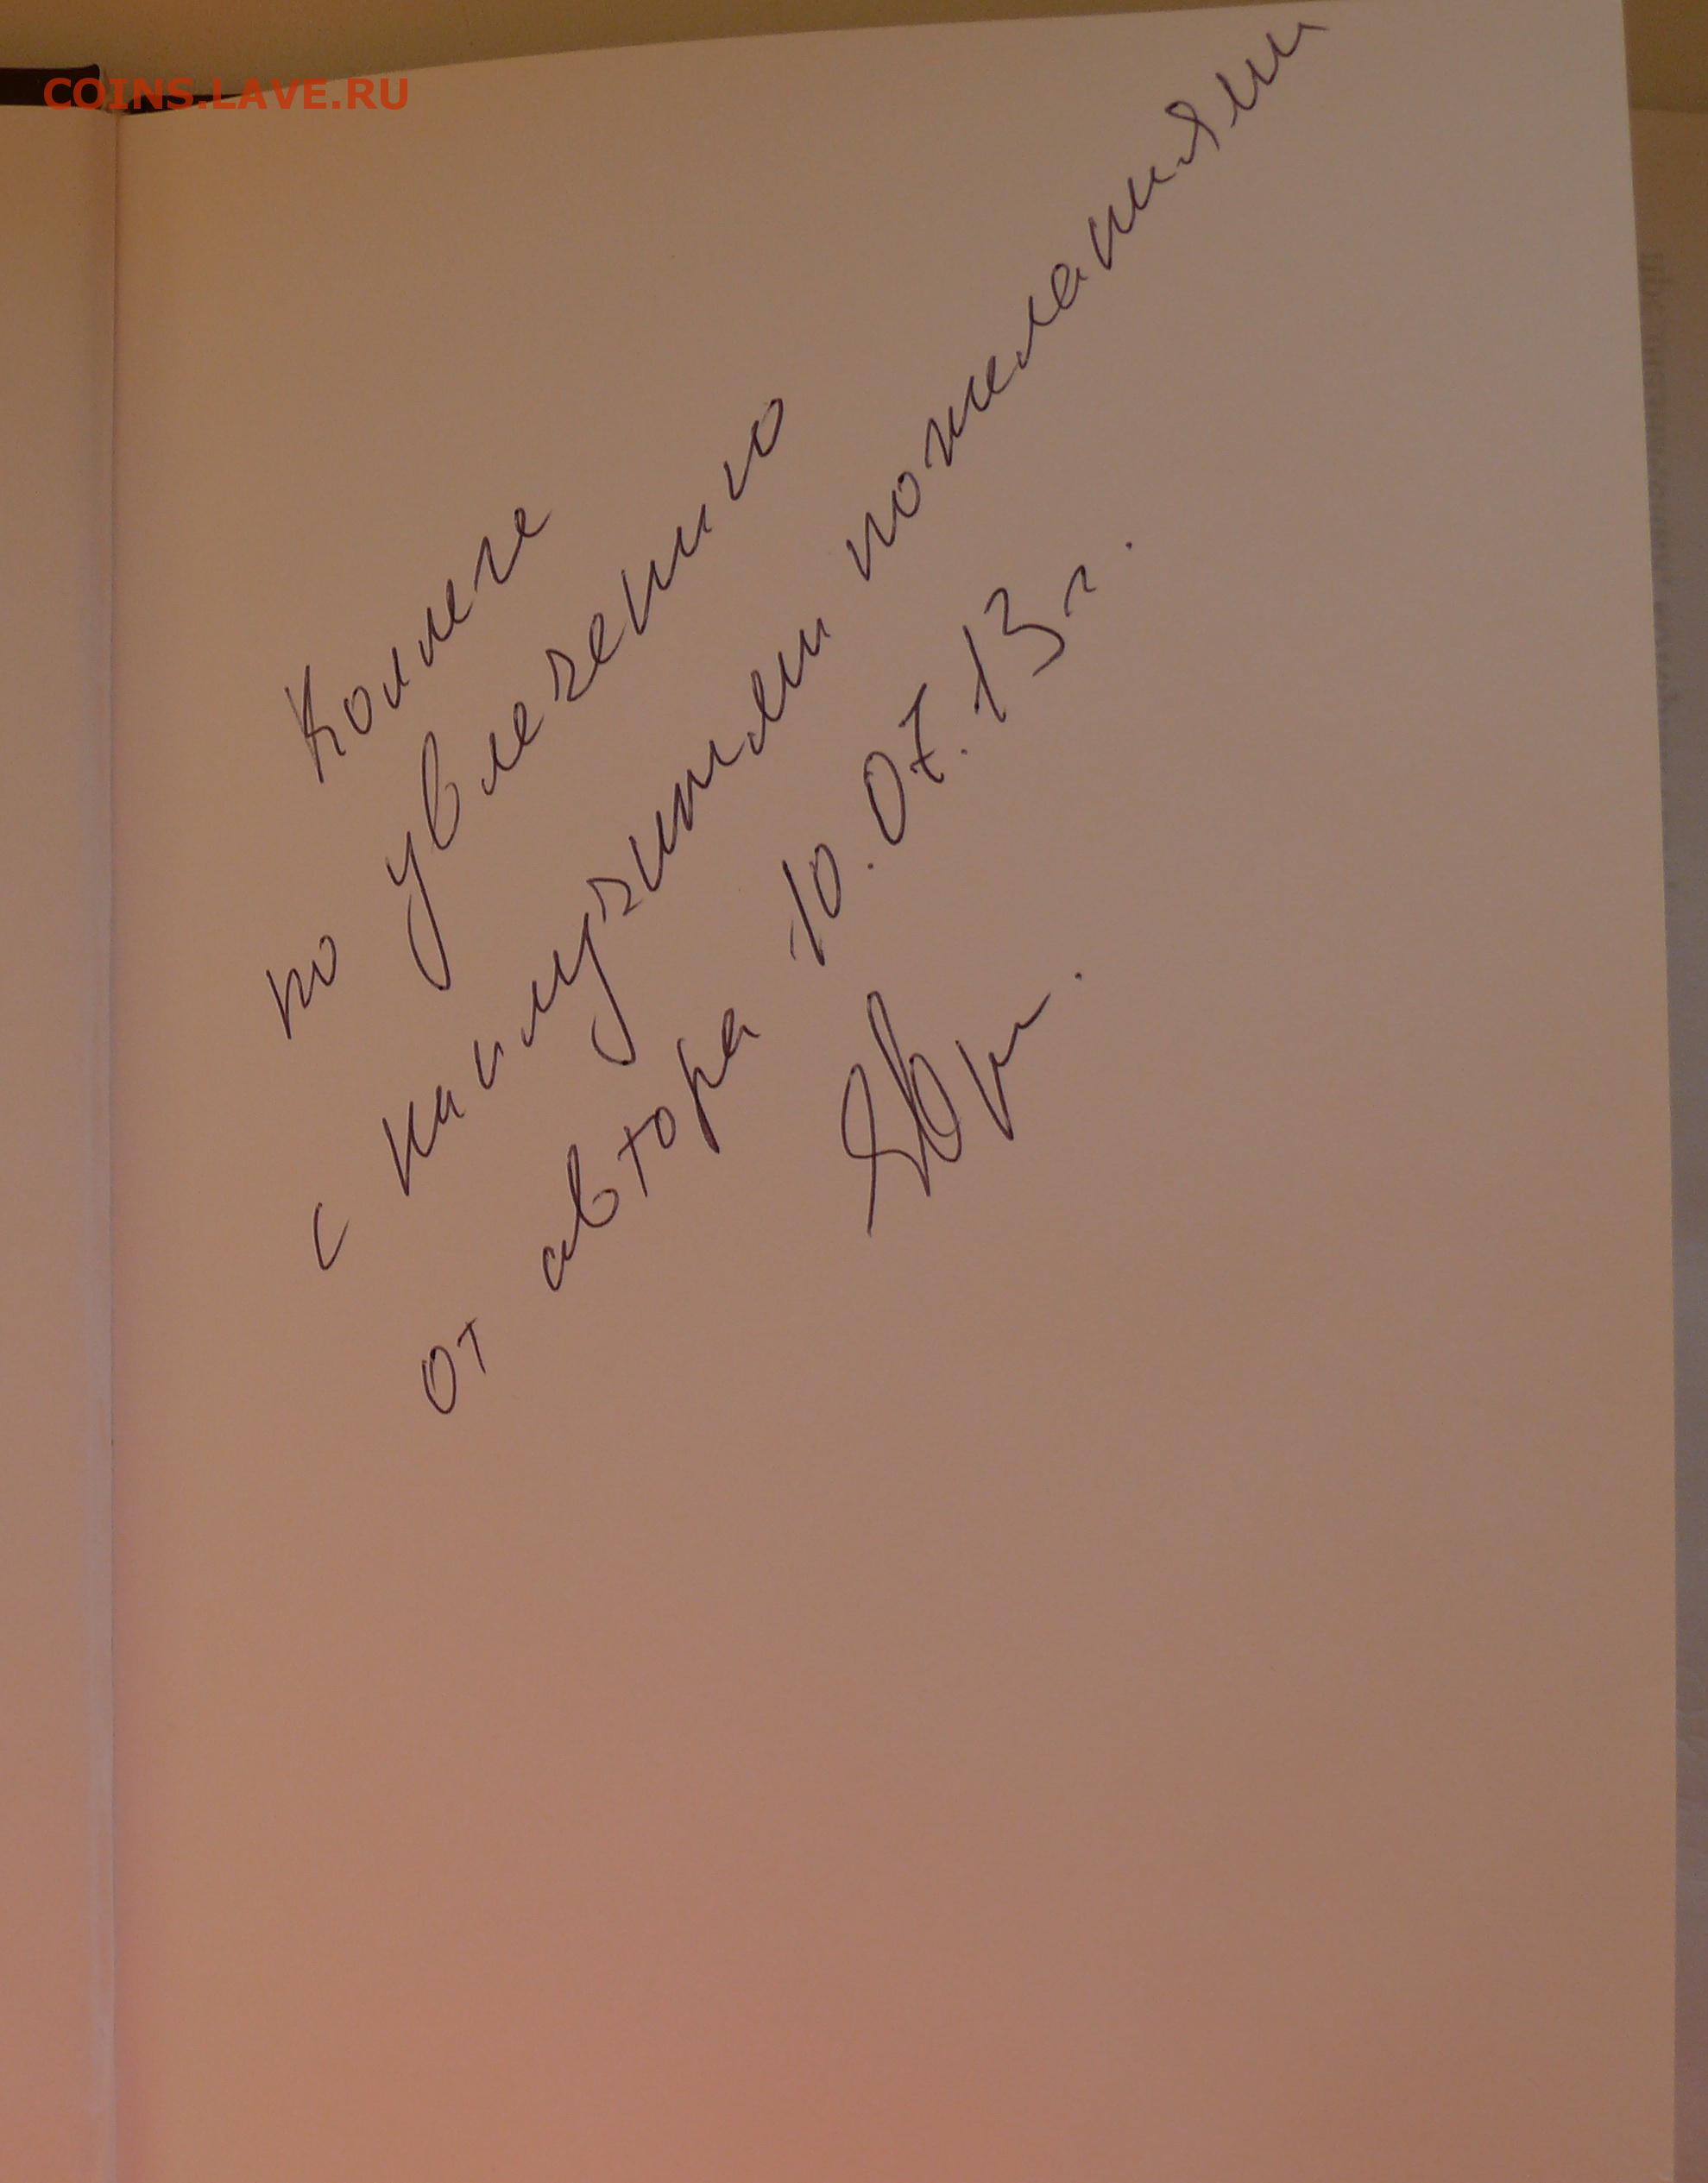 COINS.LAVE.RU
Коллеге
по увлечению
с наилучшими пожеланиями
от автора 10.07.13 г.